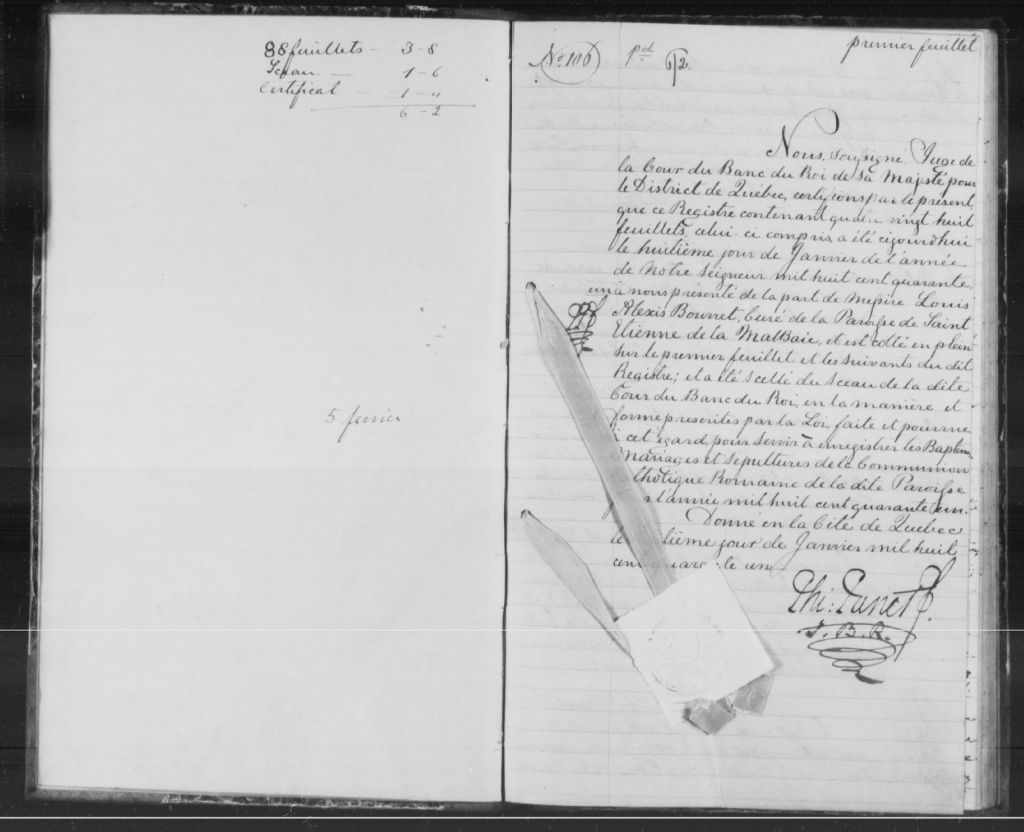 88 feuillets — 3-8
Sceau — 1-6
Certificat — 1-"
6-2
5 fevrier
premier feuillet
No 106 pd 6/2
Nous, soussigné, Juge de
la Cour du Banc du Roi de Sa Majesté pour
le District de Québec, certifions par le présent,
que ce Registre contenant quatre vingt huit
feuillets, celui-ci compris, a été cejourd'hui
le huitième jour de Janvier de l'année
de Notre Seigneur mil huit cent quarante
un à nous présenté de la part de Messire Louis
Alexis Bourret, Curé de la Paroisse de Saint
Etienne de la Malbaie, et est cotté en plein
sur le premier feuillet et les suivants du dit
Registre; et a été scellé du Sceau de la dite
Cour du Banc du Roi, en la manière et
forme prescrites par la Loi, faite et pourvue
à cet égard, pour servir à enregistrer les Baptêmes,
Mariages et Sépultures de la Communion
tholique Romaine de la dite Paroisse
p r l'année mil huit cent quarante un.
Donné en la Cité de Quebec
le tième jour de Janvier mil huit
cent quara te un
Phi: Panet
J. B. R.